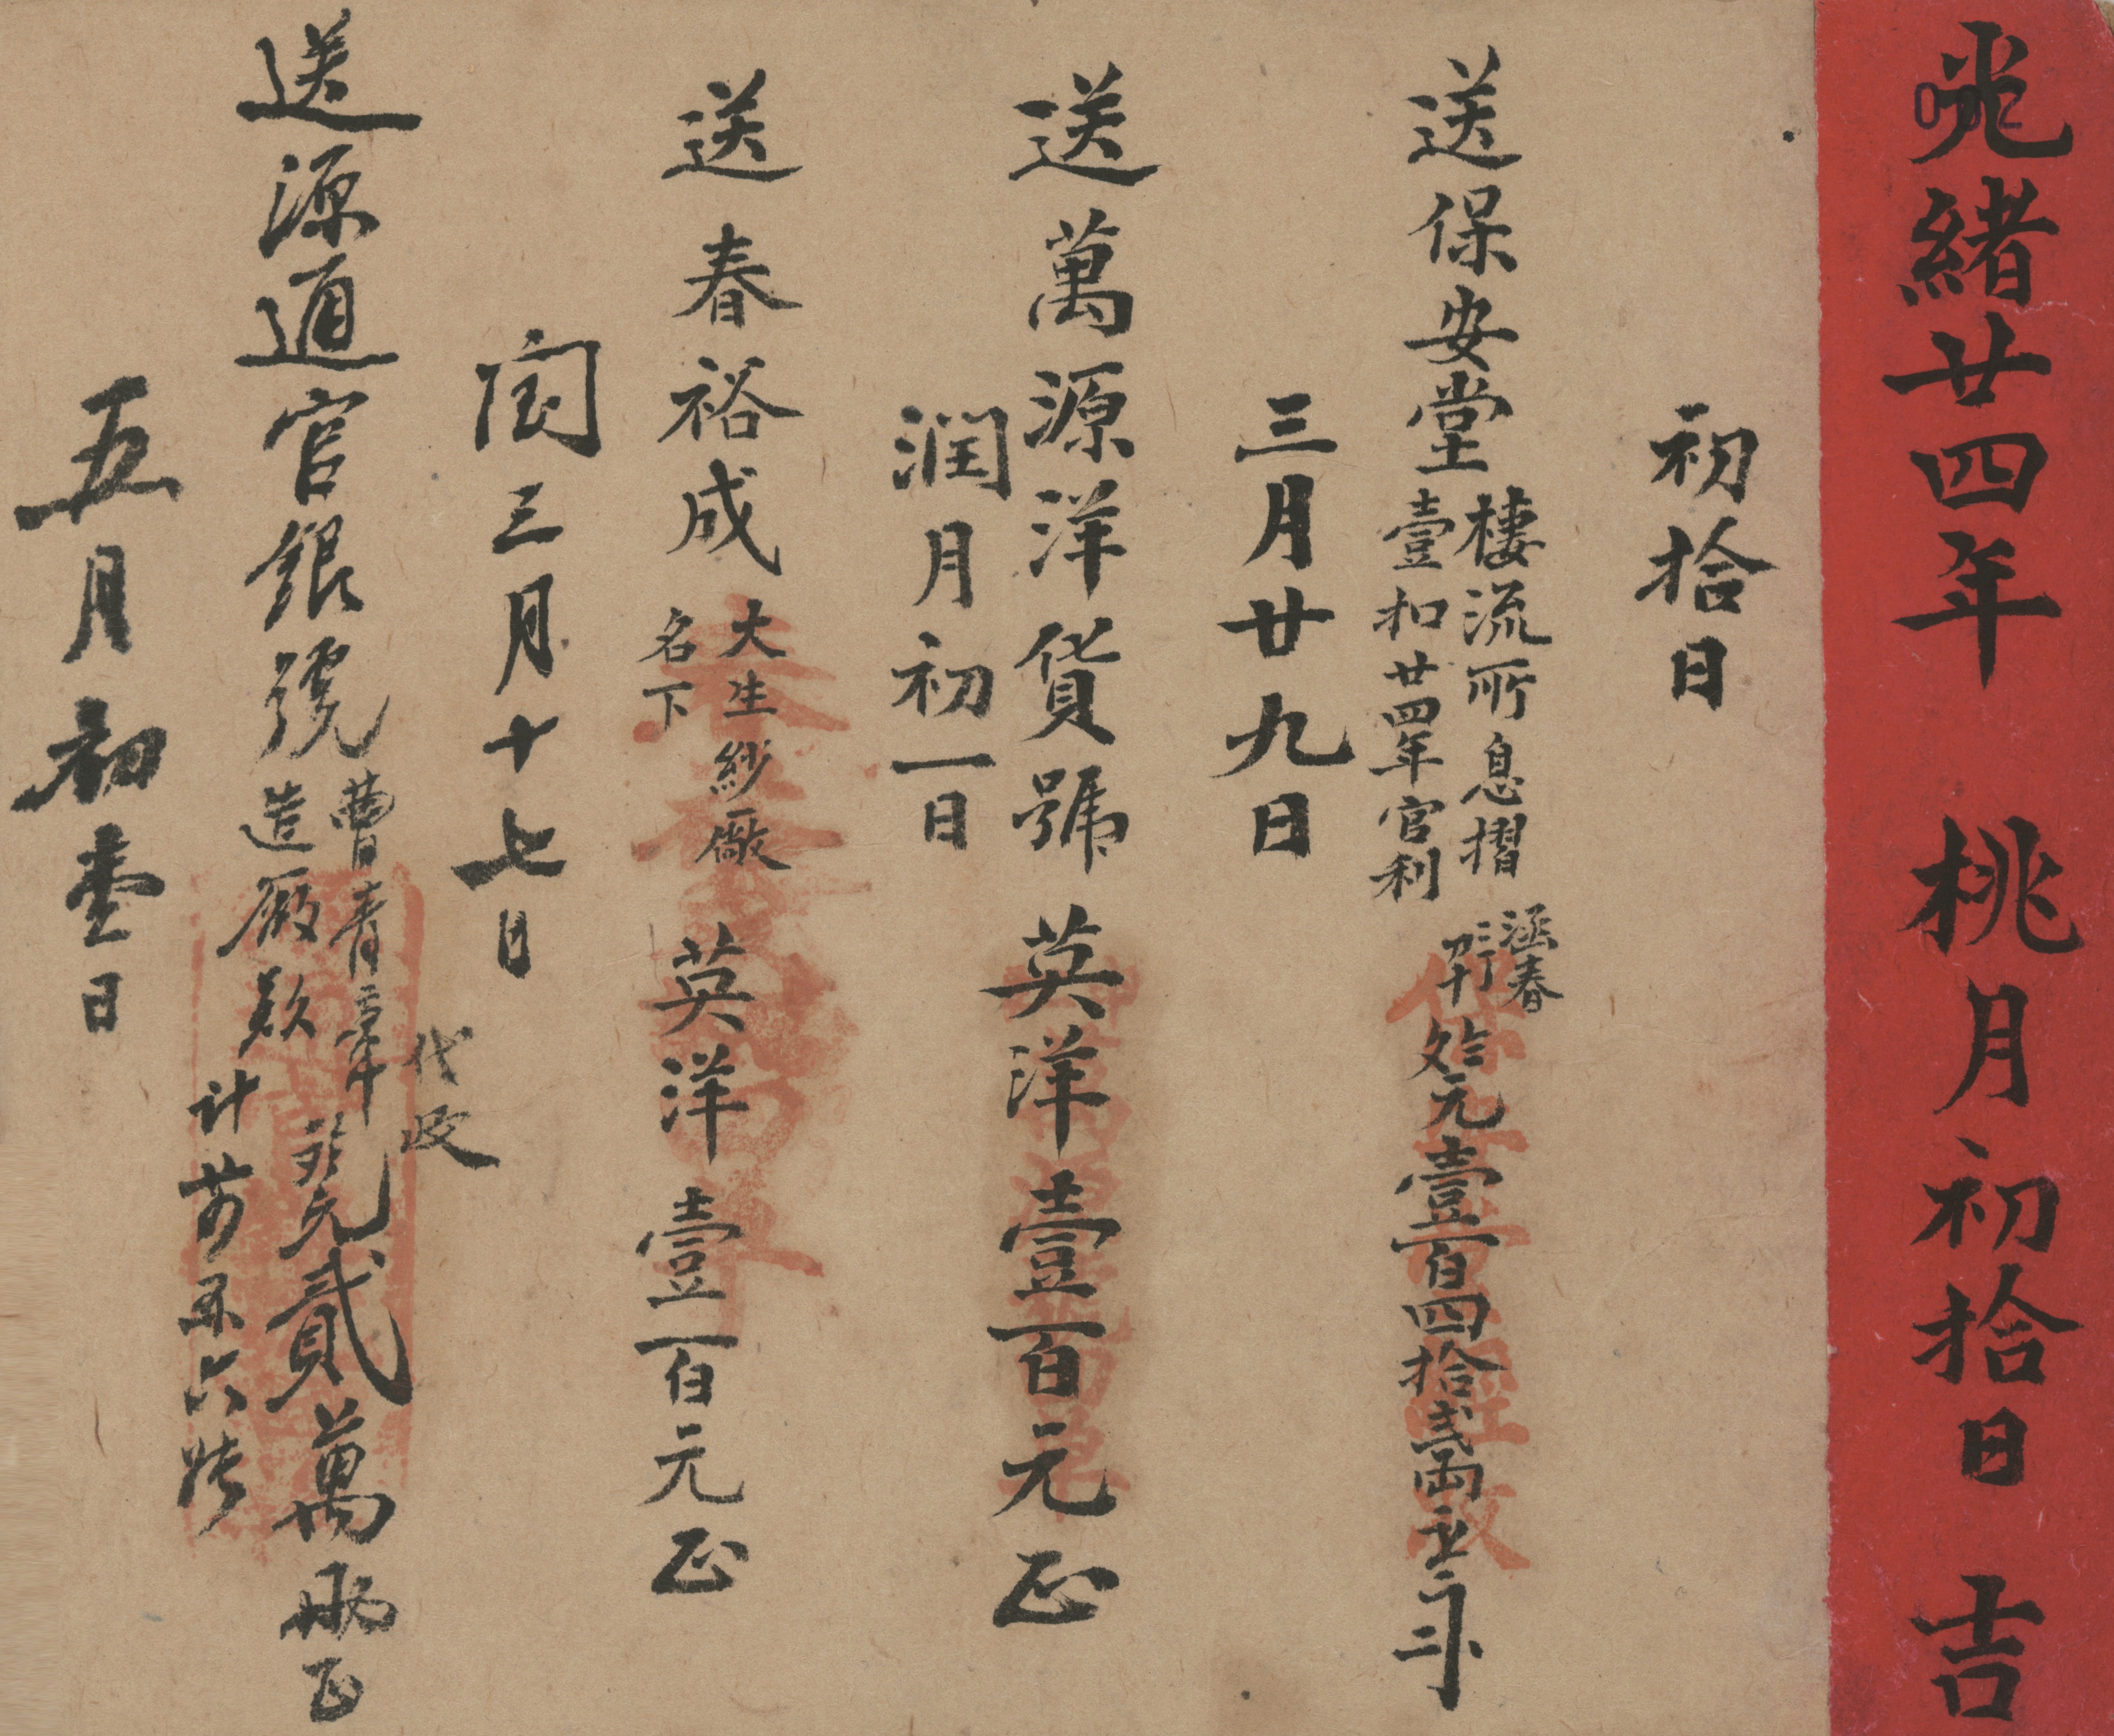 光緒廿四年 桃月初拾日 吉
初拾日
送保安堂
棲流所息摺
壹扣廿四年官利
涵春
元壹百四拾弍兩
三月廿九日
送萬源洋貨號英洋壹百元正
潤月初一日
送春裕成
大生紗廠
名下
英洋壹百元正
閏三月十七日
送源通官銀號
曹青章
造廠款
代收
元貳萬兩正
五月初壹日